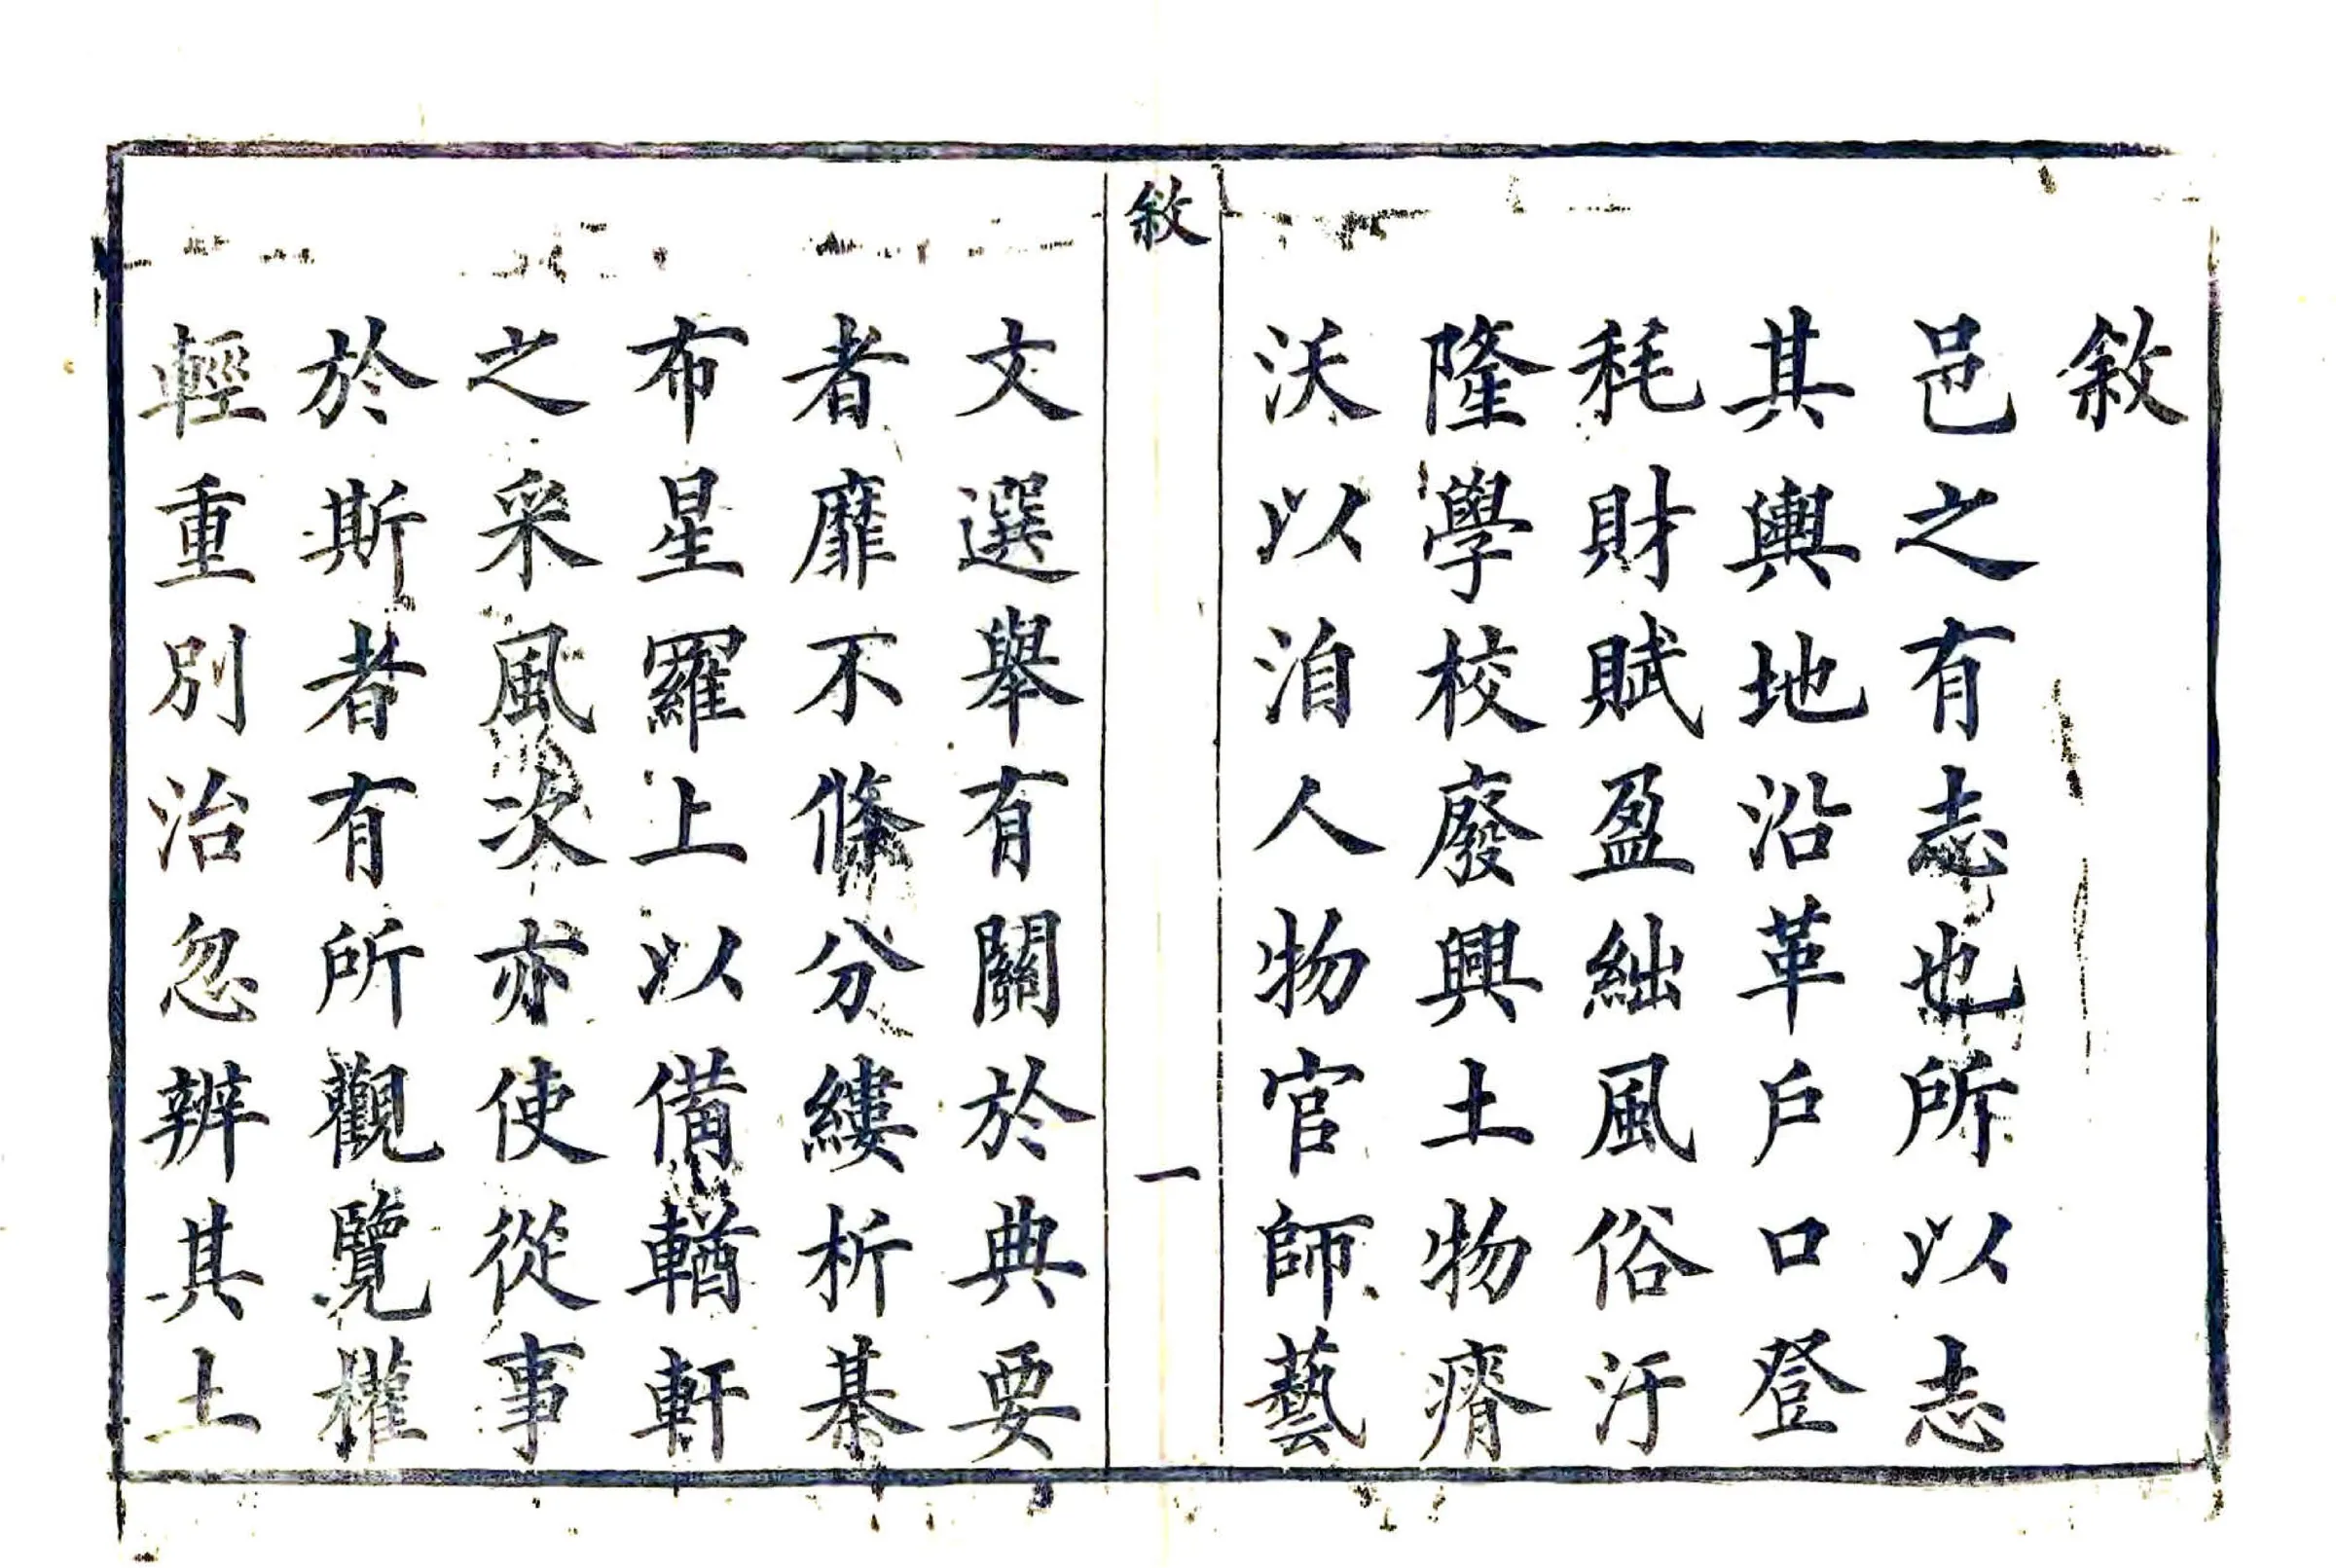 敘
邑之有志也所以志
其輿地沿革戶口登
秏財賦盈絀風俗汙
隆學校廢興土物瘠
沃以洎人物官師藝
敘
一
文選舉有關於典要
者靡不條分縷析棊
布星羅上以備輶軒
之采風次亦使從事
於斯者有所觀覽權
輕重別治忽辨其土